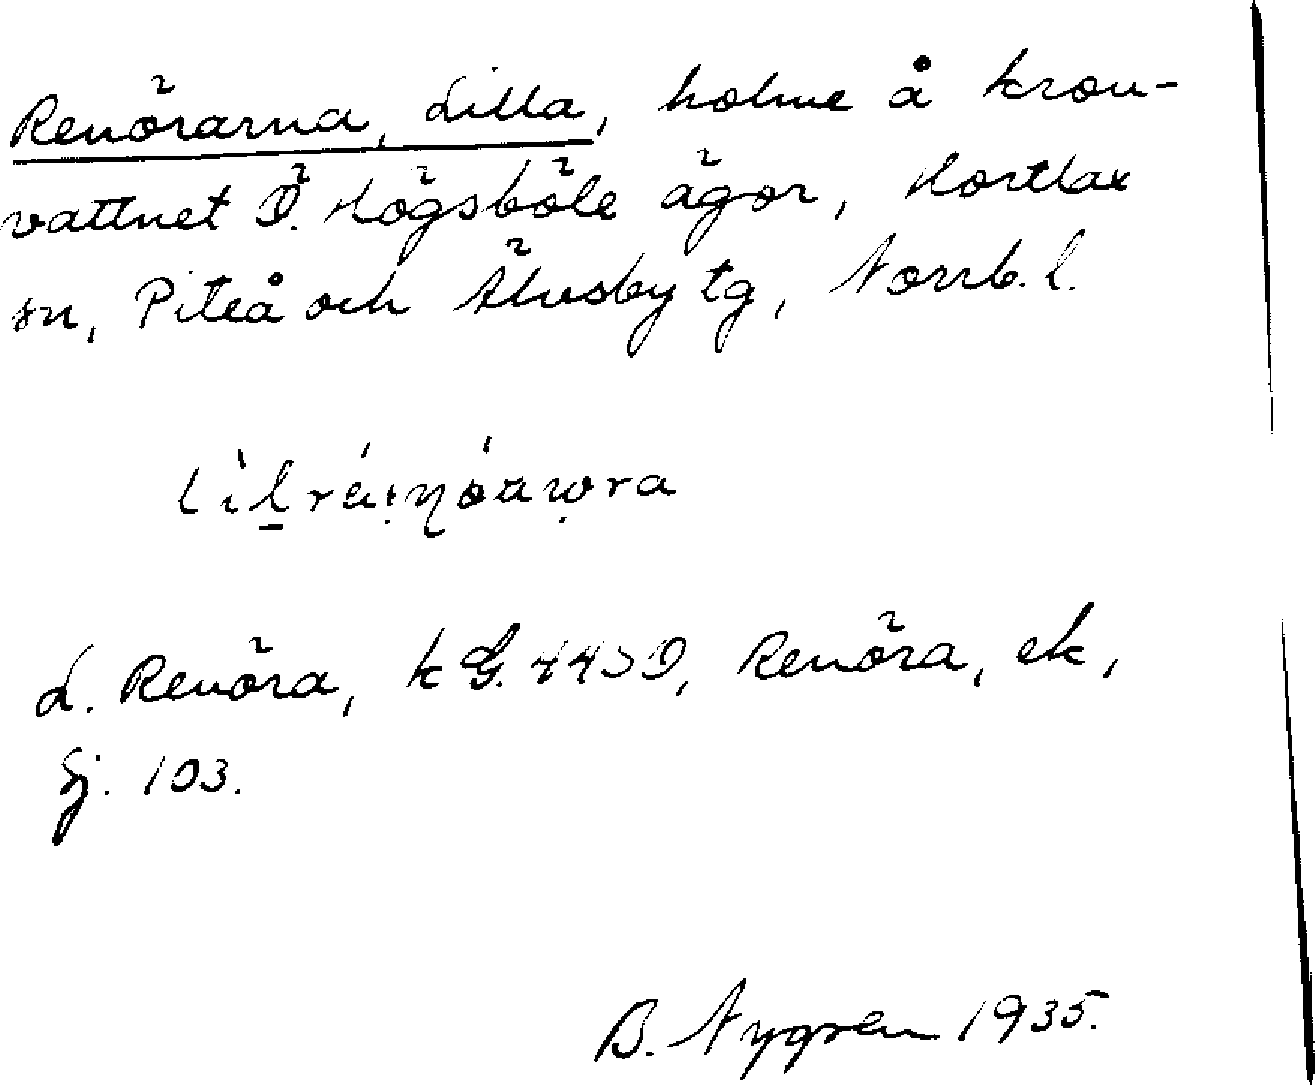 Renörarna, Lilla, holme å kron-
vattnet Ö. Högsböle ägor, Hortlax
sn, Piteå och Älvsby tg, Norrb. l.
L. Renöra, k G. 44 Renöra, ek,
Sj. 103.
B. Nygren 1935.